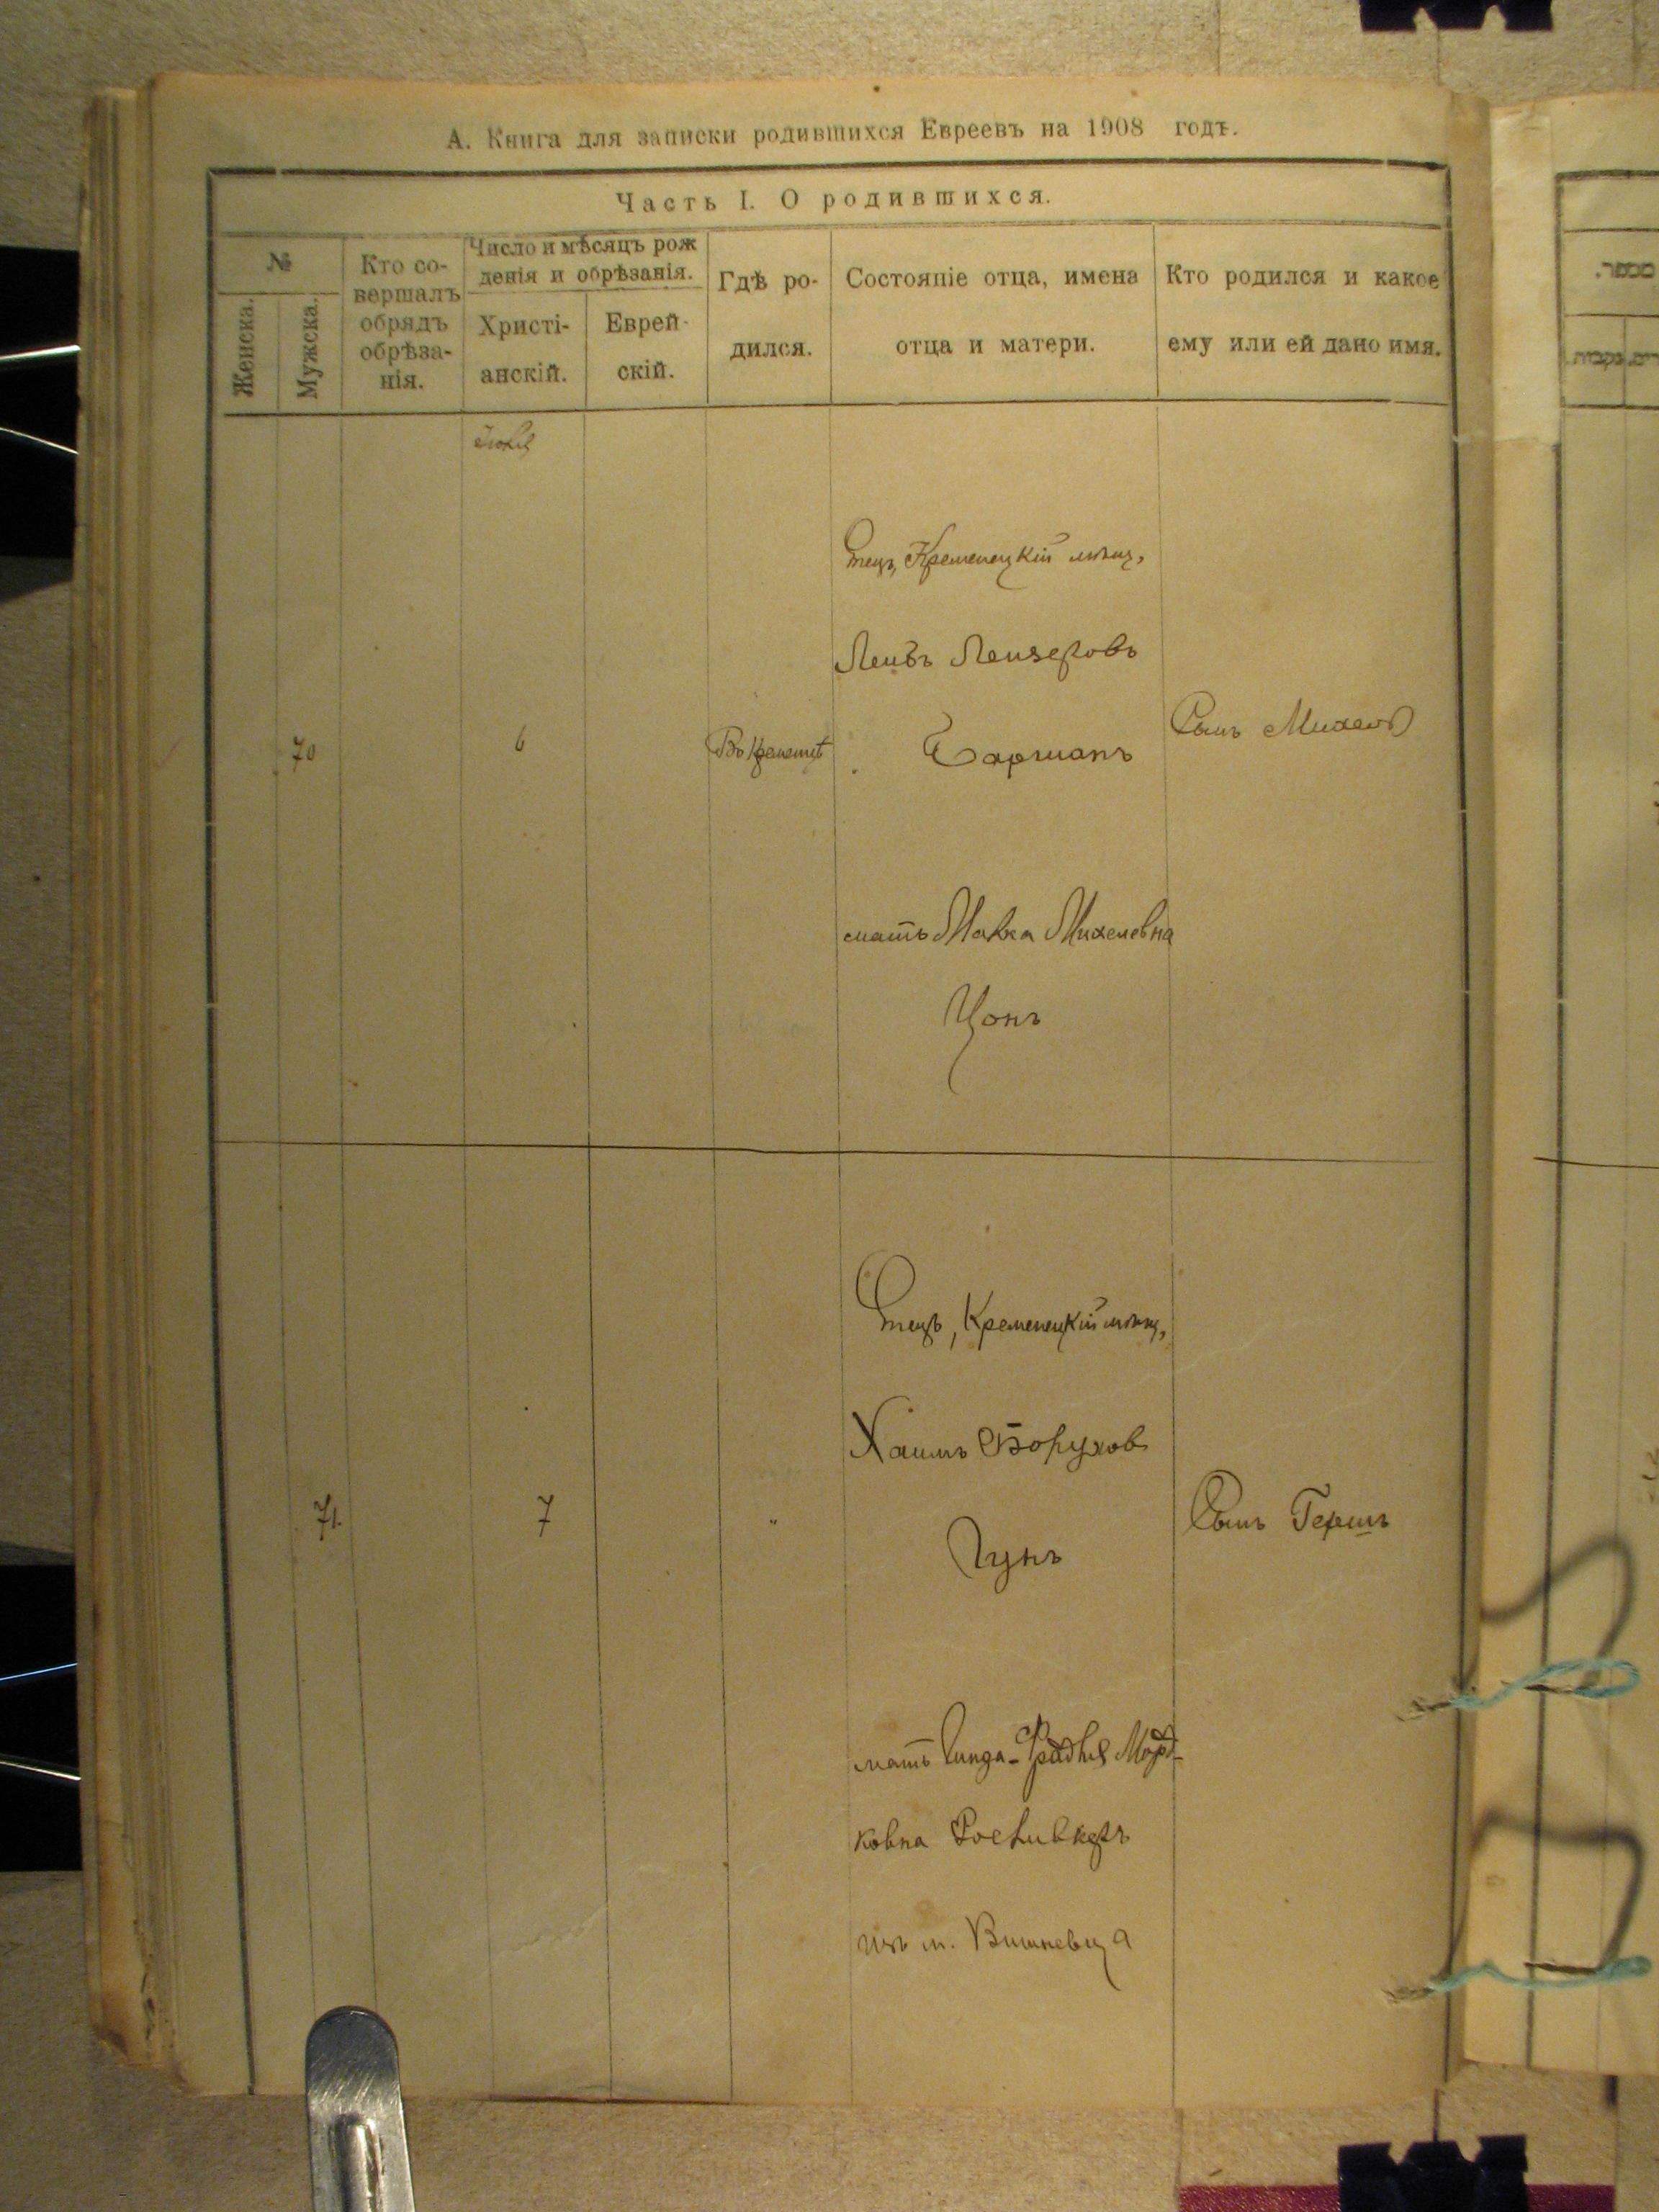 А. Книга для записки родившихся Евреевъ на 1908 годъ.
Часть I. О родившихся.
№
Женска.
Мужска.
Кто со-
вершалъ
обрядъ
обрѣза-
нія.
Число и мѣсяцъ рож
денія и обрѣзанія.
Христі-
анскій.
Еврей-
скій.
Гдѣ ро-
дился.
Состояніе отца, имена
отца и матери.
Кто родился и какое
ему или ей дано имя.
70
6
Въ Кременцѣ
Отецъ, Кременецкій мѣщ,
Лейбъ Лейзеровъ
Барманъ
мать Малка Михелевна
Цонъ
Сынъ Михель
71.
7
"
Отецъ, Кременецкій мѣщ,
Хаимъ Боруховъ
Гунъ
мать Фрадля Морд-
ковна
изъ м. Вишневца
Сынъ Гершъ